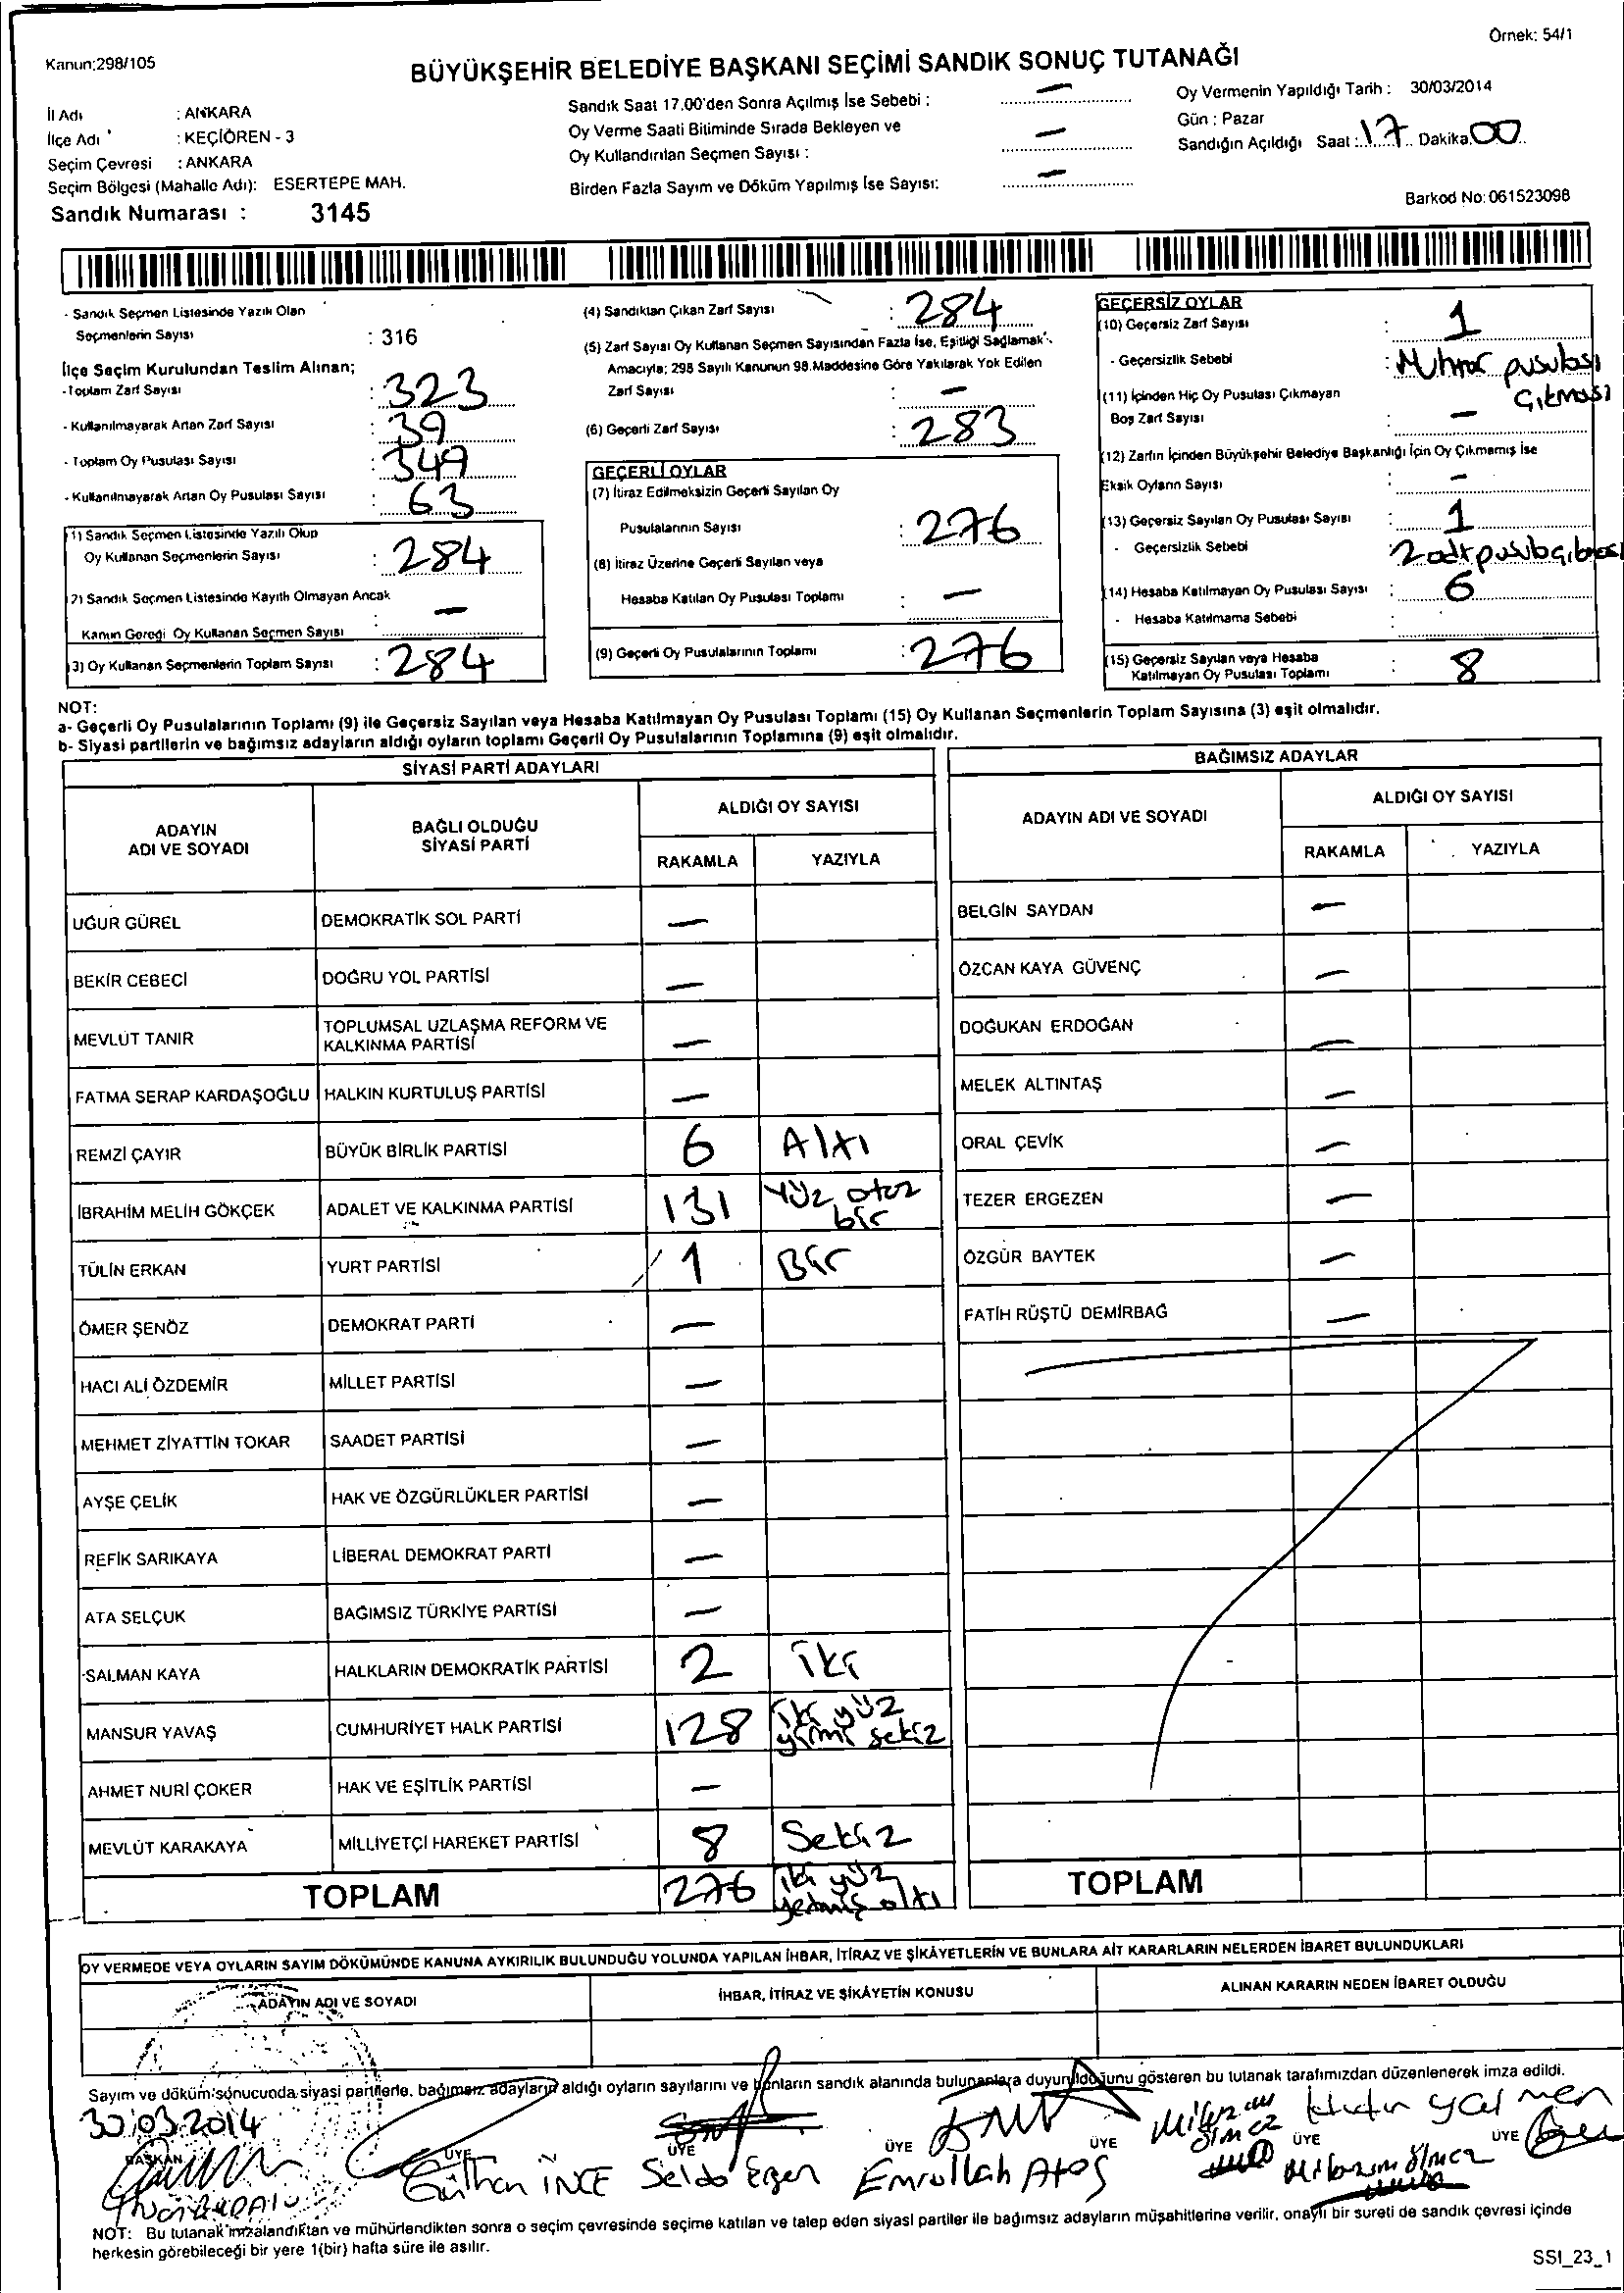 Örnek: 54/1
Kanun:298/105
BÜYÜKŞEHİR BELEDİYE BAŞKANI SEÇİMİ SANDIK SONUÇ TUTANAĞI
İl Adı : ANKARA
İlçe Adı : KEÇİÖREN - 3
Seçim Çevresi : ANKARA
Seçim Bölgesi (Mahalle Adı): ESERTEPE MAH.
Sandık Numarası : 3145
Sandık Saat 17.00'den Sonra Açılmış İse Sebebi : —
Oy Verme Saati Bitiminde Sırada Bekleyen ve
Oy Kullandırılan Seçmen Sayısı : —
Birden Fazla Sayım ve Döküm Yapılmış İse Sayısı: —
Oy Vermenin Yapıldığı Tarih : 30/03/2014
Gün : Pazar
Sandığın Açıldığı Saat : 17 Dakika 00
Barkod No: 061523098
- Sandık Seçmen Listesinde Yazılı Olan
Seçmenlerin Sayısı : 316
İlçe Seçim Kurulundan Teslim Alınan;
- Toplam Zarf Sayısı : 323
- Kullanılmayarak Artan Zarf Sayısı : 39
- Toplam Oy Pusulası Sayısı : 347
- Kullanılmayarak Artan Oy Pusulası Sayısı : 63
(1) Sandık Seçmen Listesinde Yazılı Olup
Oy Kullanan Seçmenlerin Sayısı : 284
(2) Sandık Seçmen Listesinde Kayıtlı Olmayan Ancak
Kanun Gereği Oy Kullanan Seçmen Sayısı : —
(3) Oy Kullanan Seçmenlerin Toplam Sayısı : 284
(4) Sandıktan Çıkan Zarf Sayısı : 284
(5) Zarf Sayısı Oy Kullanan Seçmen Sayısından Fazla İse, Eşitliği Sağlamak
Amacıyla; 298 Sayılı Kanunun 98.Maddesine Göre Yakılarak Yok Edilen
Zarf Sayısı : —
(6) Geçerli Zarf Sayısı : 283
GEÇERLİ OYLAR
(7) İtiraz Edilmeksizin Geçerli Sayılan Oy
Pusulalarının Sayısı : 276
(8) İtiraz Üzerine Geçerli Sayılan veya
Hesaba Katılan Oy Pusulası Toplamı : —
(9) Geçerli Oy Pusulalarının Toplamı : 276
GEÇERSİZ OYLAR
(10) Geçersiz Zarf Sayısı : 1
- Geçersizlik Sebebi : Muhtar pusulası
çıkması
(11) İçinden Hiç Oy Pusulası Çıkmayan
Boş Zarf Sayısı : —
(12) Zarfın İçinden Büyükşehir Belediye Başkanlığı İçin Oy Çıkmamış İse
Eksik Oyların Sayısı : —
(13) Geçersiz Sayılan Oy Pusulası Sayısı : 1
- Geçersizlik Sebebi 2 adt pusula çıkması
(14) Hesaba Katılmayan Oy Pusulası Sayısı : 6
- Hesaba Katılmama Sebebi :
(15) Geçersiz Sayılan veya Hesaba
Katılmayan Oy Pusulası Toplamı : 8
NOT:
a- Geçerli Oy Pusulalarının Toplamı (9) ile Geçersiz Sayılan veya Hesaba Katılmayan Oy Pusulası Toplamı (15) Oy Kullanan Seçmenlerin Toplam Sayısına (3) eşit olmalıdır.
b- Siyasi partilerin ve bağımsız adayların aldığı oyların toplamı Geçerli Oy Pusulalarının Toplamına (9) eşit olmalıdır.
SİYASİ PARTİ ADAYLARI
ADAYIN
ADI VE SOYADI
BAĞLI OLDUĞU
SİYASİ PARTİ
ALDIĞI OY SAYISI
RAKAMLA YAZIYLA
UĞUR GÜREL DEMOKRATİK SOL PARTİ —
BEKİR CEBECİ DOĞRU YOL PARTİSİ —
MEVLÜT TANIR TOPLUMSAL UZLAŞMA REFORM VE
KALKINMA PARTİSİ —
FATMA SERAP KARDAŞOĞLU HALKIN KURTULUŞ PARTİSİ —
REMZİ ÇAYIR BÜYÜK BİRLİK PARTİSİ 6 Altı
İBRAHİM MELİH GÖKÇEK ADALET VE KALKINMA PARTİSİ 131 Yüz otuz
bir
TÜLİN ERKAN YURT PARTİSİ 1 Bir
ÖMER ŞENÖZ DEMOKRAT PARTİ —
HACI ALİ ÖZDEMİR MİLLET PARTİSİ —
MEHMET ZİYATTİN TOKAR SAADET PARTİSİ —
AYŞE ÇELİK HAK VE ÖZGÜRLÜKLER PARTİSİ —
REFİK SARIKAYA LİBERAL DEMOKRAT PARTİ —
ATA SELÇUK BAĞIMSIZ TÜRKİYE PARTİSİ —
SALMAN KAYA HALKLARIN DEMOKRATİK PARTİSİ 2 iki
MANSUR YAVAŞ CUMHURİYET HALK PARTİSİ 128 iki yüz
yirmi sekiz
AHMET NURİ ÇOKER HAK VE EŞİTLİK PARTİSİ —
MEVLÜT KARAKAYA MİLLİYETÇİ HAREKET PARTİSİ 8 Sekiz
TOPLAM 276 iki yüz
yetmiş altı
BAĞIMSIZ ADAYLAR
ADAYIN ADI VE SOYADI
ALDIĞI OY SAYISI
RAKAMLA YAZIYLA
BELGİN SAYDAN —
ÖZCAN KAYA GÜVENÇ —
DOĞUKAN ERDOĞAN —
MELEK ALTINTAŞ —
ORAL ÇEVİK —
TEZER ERGEZEN —
ÖZGÜR BAYTEK —
FATİH RÜŞTÜ DEMİRBAĞ —
TOPLAM
OY VERMEDE VEYA OYLARIN SAYIM DÖKÜMÜNDE KANUNA AYKIRILIK BULUNDUĞU YOLUNDA YAPILAN İHBAR, İTİRAZ VE ŞİKÂYETLERİN VE BUNLARA AİT KARARLARIN NELERDEN İBARET BULUNDUKLARI
ADAYIN ADI VE SOYADI
İHBAR, İTİRAZ VE ŞİKÂYETİN KONUSU
ALINAN KARARIN NEDEN İBARET OLDUĞU
Sayım ve döküm sonucunda siyasi partilerle, bağımsız adayların aldığı oyların sayılarını ve bunların sandık alanında bulunanlara duyurulduğunu gösteren bu tutanak tarafımızdan düzenlenerek imza edildi.
30.03.2014
BAŞKAN ÜYE ÜYE ÜYE ÜYE ÜYE ÜYE
Gülhan İNCE Selda Ezen Emrullah Ateş
NOT: Bu tutanak imzalandıktan ve mühürlendikten sonra o seçim çevresinde seçime katılan ve talep eden siyasi partiler ile bağımsız adayların müşahitlerine verilir, onaylı bir sureti de sandık çevresi içinde
herkesin görebileceği bir yere 1(bir) hafta süre ile asılır.
SSI_23_1